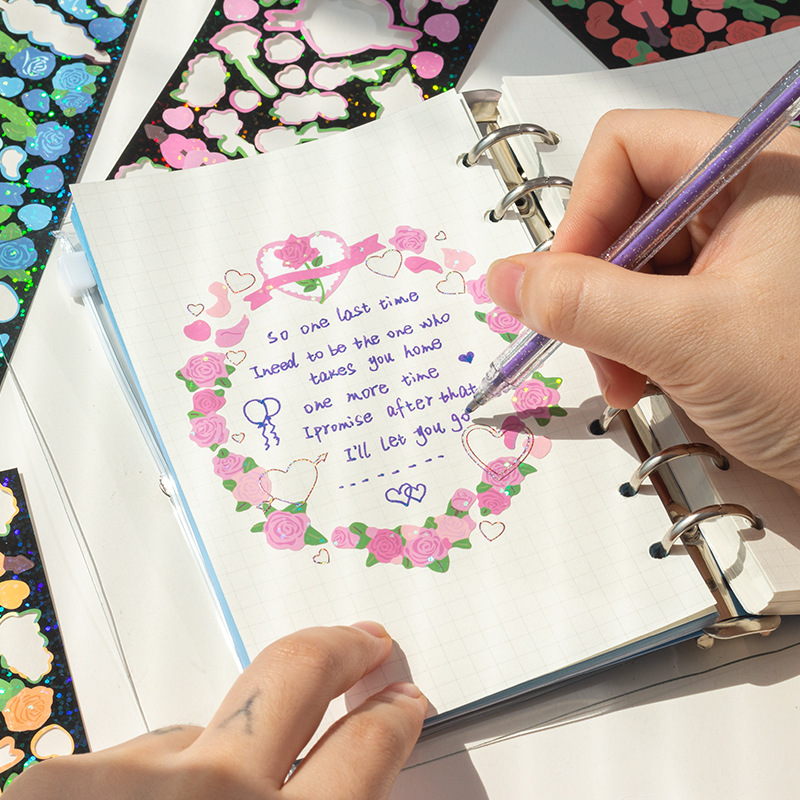 so one last time
Ineed to be the one who
takes you home
one more time
Ipromise after that
I'll let you go